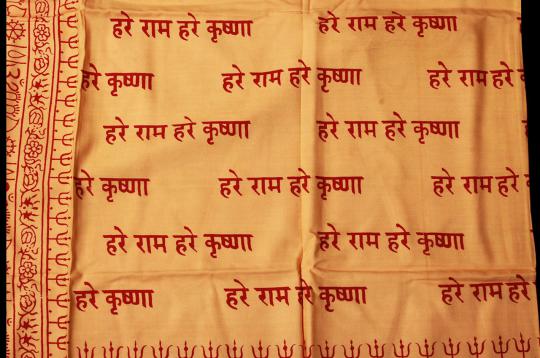 हरे राम हरे कृष्णा हरे राम हरे कृष्णा
हरे कृष्णा हरे राम हरे कृष्णा हरे राम हरे
हरे राम हरे कृष्णा हरे राम हरे कृष्णा
हरे कृष्णा हरे राम हरे कृष्णा हरे राम हरे
हरे राम हरे कृष्णा हरे राम हरे कृष्णा
हरे कृष्णा हरे राम हरे कृष्णा हरे राम हरे